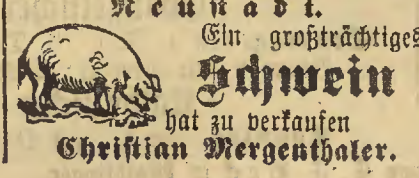 Neustadt.
Ein großträchtiges
Schwein
hat zu verkaufen
Christian Mergenthaler.